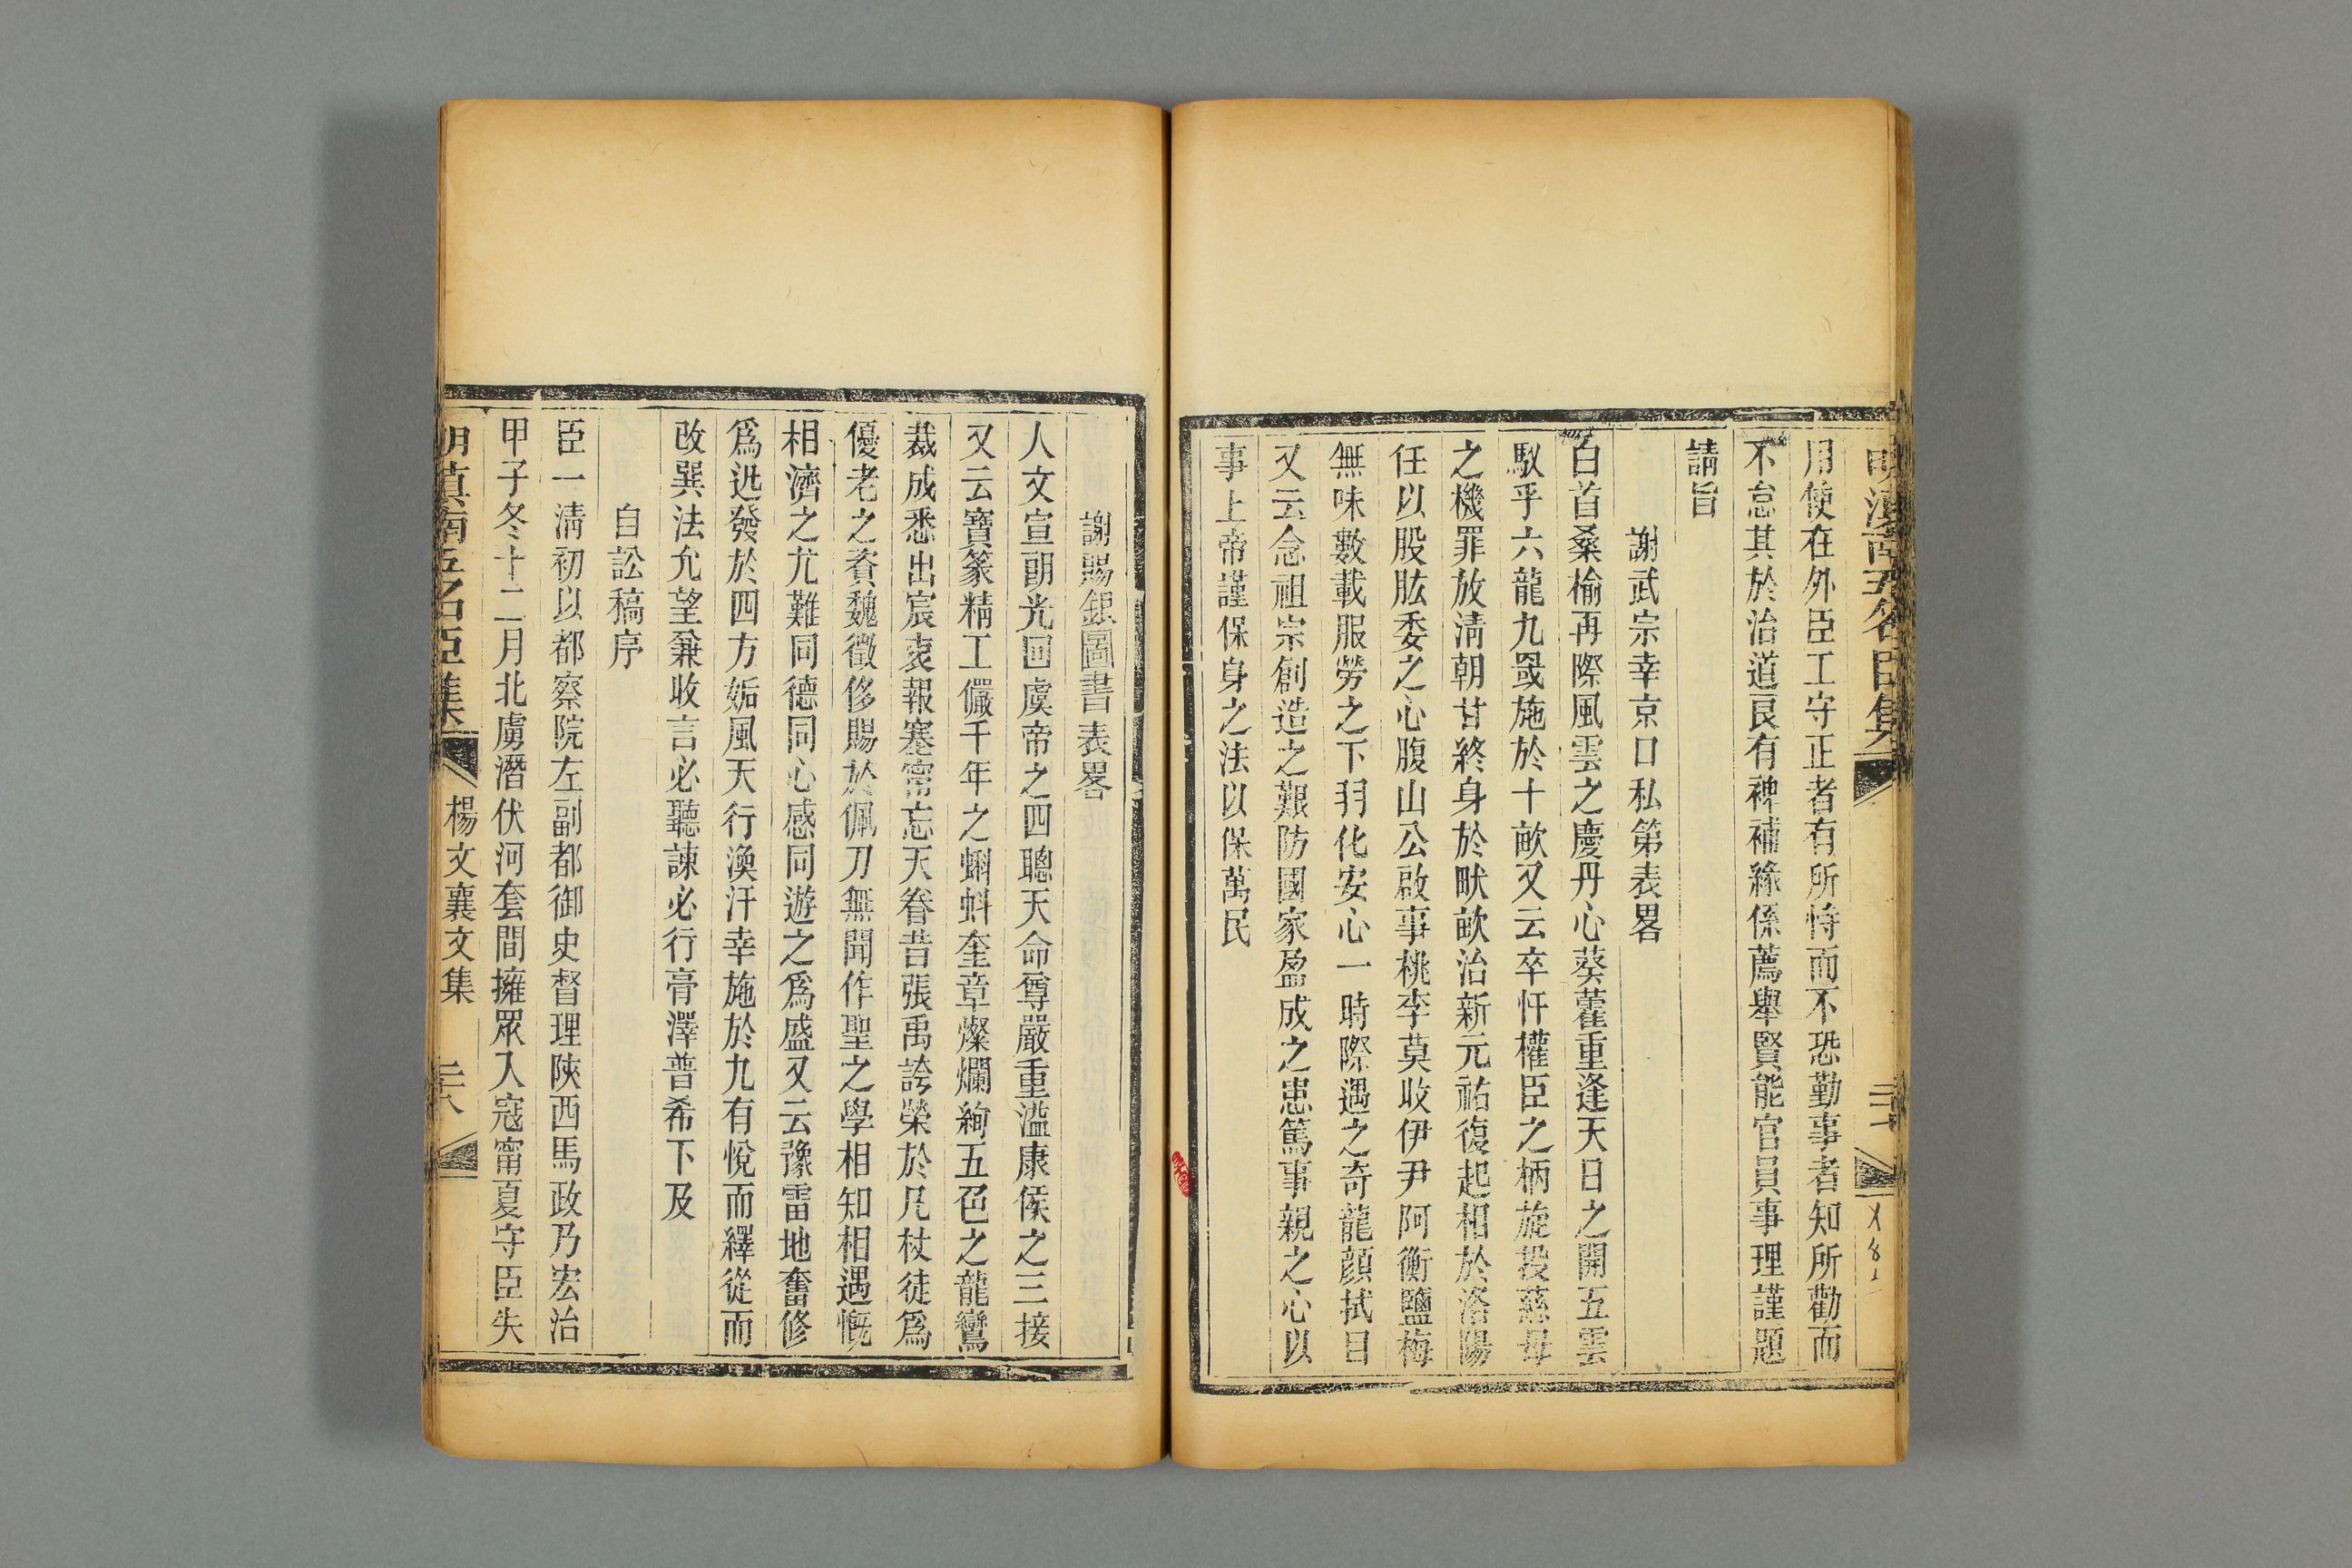 明滇南五名臣集
用使在外臣工守正者有所恃而不恐勤事者知所勸而
不怠其於治道良有裨補緣係薦舉賢能官員事理謹題
請旨
謝武宗幸京口私第表畧
白首桑榆再際風雲之慶丹心葵藿重逢天日之開五雲
馭乎六龍九罭施於十畝又云卒忤權臣之柄旋投慈母
之機罪放清朝甘終身於畎畝治新元祐復起相於洛陽
任以股肱委之心腹山公啟事桃李莫收伊尹阿衡鹽梅
無味數載服勞之下羽化安心一時際遇之奇龍顔拭目
又云念祖宗創造之艱防國家盈成之患篤事親之心以
事上帝謹保身之法以保萬民
謝賜銀圖書表畧
人文宣朗光回虞帝之四聰天命尊嚴重溢康侯之三接
又云寶篆精工儼千年之蝌蚪奎章燦爛絢五色之龍鸞
裁成悉出宸衷報塞甯忘天眷昔張禹誇榮於几杖徒爲
優老之資魏徵侈賜於佩刀無聞作聖之學相知相遇慨
相濟之尤難同德同心感同遊之爲盛又云豫雷地奮修
爲迅發於四方姤風天行渙汗幸施於九有悅而繹從而
改巽法允望兼收言必聽諫必行膏澤普希下及
自訟稿序
臣一淸初以都察院左副都御史督理陝西馬政乃宏治
甲子冬十二月北虜潛伏河套間擁眾入寇甯夏守臣失
明滇南五名臣集 楊文襄文集 二十八